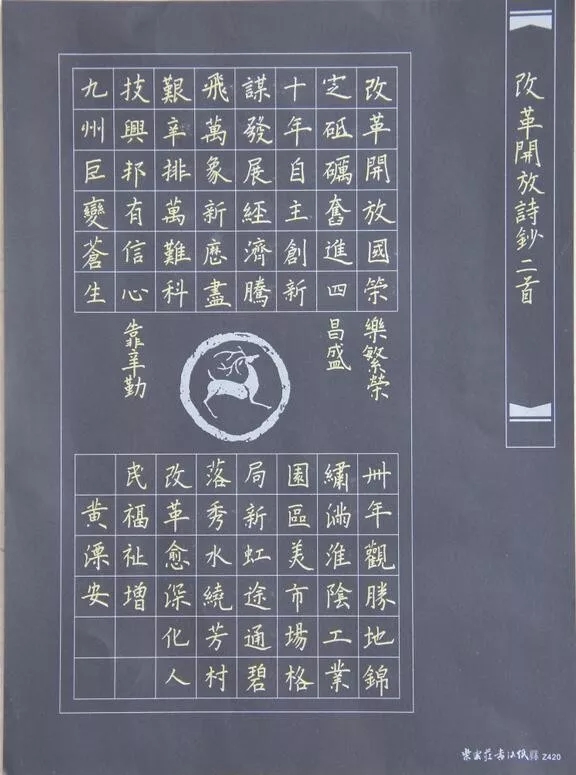 改革開放詩鈔二首
改革開放國策
定砥礪奮進四
十年自主創新
謀發展經濟騰
飛萬象新歷盡
艱辛排萬難科
技興邦有信心
九州巨變蒼生
樂繁榮
昌盛
靠辛勤
卅年觀勝地錦
繡滿淮陰工業
園區美市場格
局新虹途通碧
落秀水繞芳村
改革愈深化人
民福祉增
黃溧安
Z420